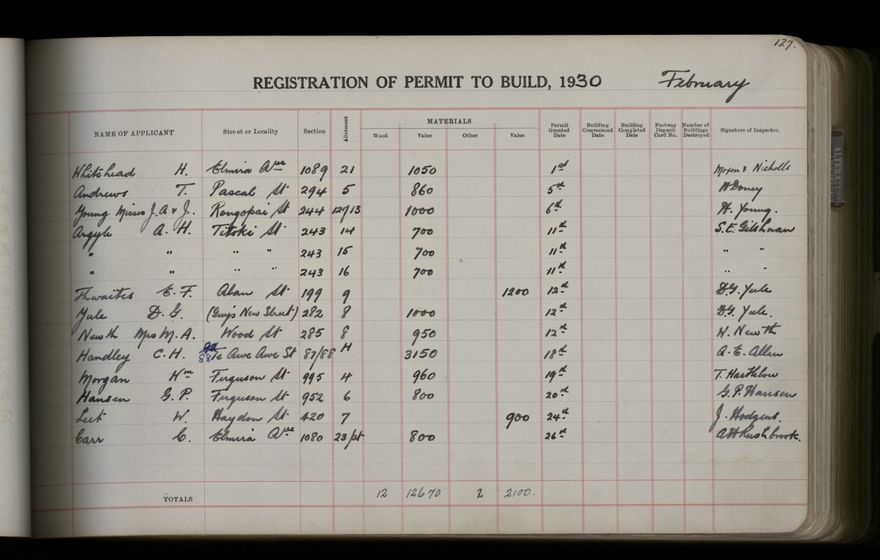 127.
REGISTRATION OF PERMIT TO BUILD, 1930 February
NAME OF APPLICANT Street or Locality Section Allotment MATERIALS Wood Value Other Value Permit Granted Date Building Commenced Date Building Completed Date Footway Deposit Card No. Number of Buildings Destroyed Signature of Inspector.
Whitehead H. Elmira Ave 1089 21 1050 1st Moxon & Nicholls
Andrews T. Pascal St 294 5 860 5th
Young Misses J.A & J. Rongopai St 244 12/13 1000 6th H. Young.
Argyle A. H. Titoki St 243 14 700 11th S.E.
" " " " 243 15 700 11th " "
" " " " 243 16 700 11th " "
Thwaites E. F. Alan St 199 9 1200 12th D.G. Yule
Yule D. G. (Guy's New Street) 282 8 1000 12th D.G. Yule.
Newth Mrs M. A. Wood St 285 8 950 12th W. Newth
Handley C. H. 88 Te Awe Awe St 87/88 H 3150 18th A. E. Allen
Morgan Wm Ferguson St 995 4 960 19th T.
Hansen G. P. Ferguson St 952 6 800 20th G. P. Hansen
W. Haydon St. 420 7 900 24th J.
Carr C. Elmira Ave 1080 23/pt 800 26th Rushbrook.
TOTALS 12 12670 2 2100.